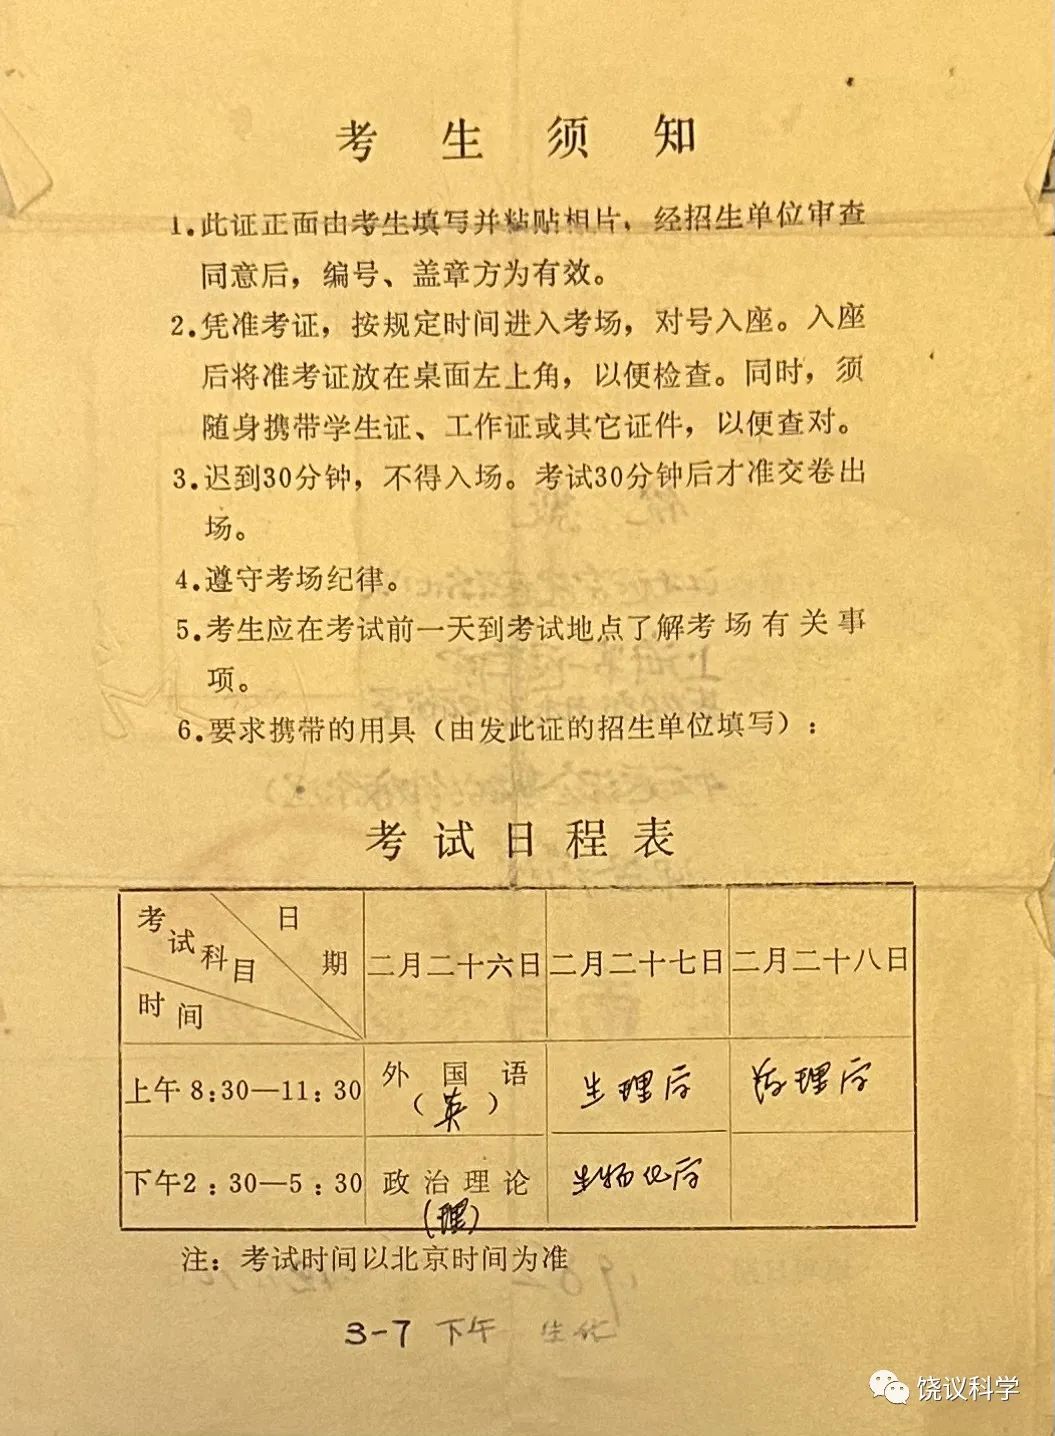 考生须知
1.此证正面由考生填写并粘贴相片，经招生单位审查
同意后，编号、盖章方为有效。
2.凭准考证，按规定时间进入考场，对号入座。入座
后将准考证放在桌面左上角，以便检查。同时，须
随身携带学生证、工作证或其它证件，以便查对。
3.迟到30分钟，不得入场。考试30分钟后才准交卷出
场。
4.遵守考场纪律。
5.考生应在考试前一天到考试地点了解考场有关事
项。
6.要求携带的用具（由发此证的招生单位填写）：
考试日程表
考试科目 日期 时间 二月二十六日 二月二十七日 二月二十八日
上午 8:30—11:30 外国语（英） 生理学 药理学
下午2:30—5:30 政治理论（理） 生物化学
注：考试时间以北京时间为准
3-7 下午 生化
饶议科学